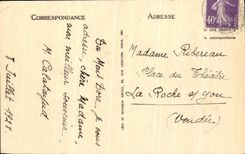 CORRESPONDANCE
ADRESSE
Du Mont Dore, je vous
adresse, chère Madame,
mon meilleur souvenir.
M. Catalaford
7 Juillet 1928.
Madame Ribereau
Place du Théâtre
La Roche s/yon
Vendée
40